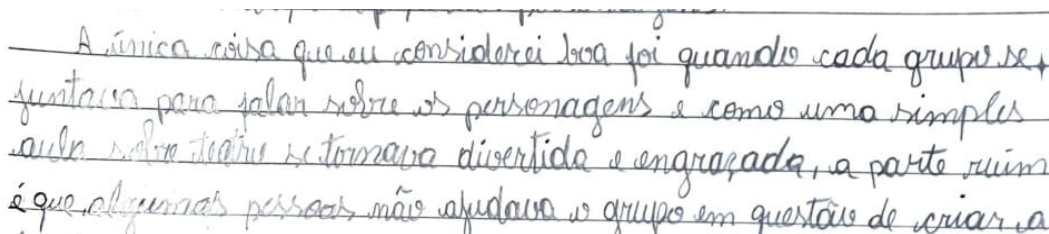 A única coisa que eu considerei boa foi quando cada grupo se
juntava para falar sobre os personagens e como uma simples
aula sobre teatro se tornava divertida e engraçada, a parte ruim
é que, algumas pessoas não ajudava o grupo em questão de criar a